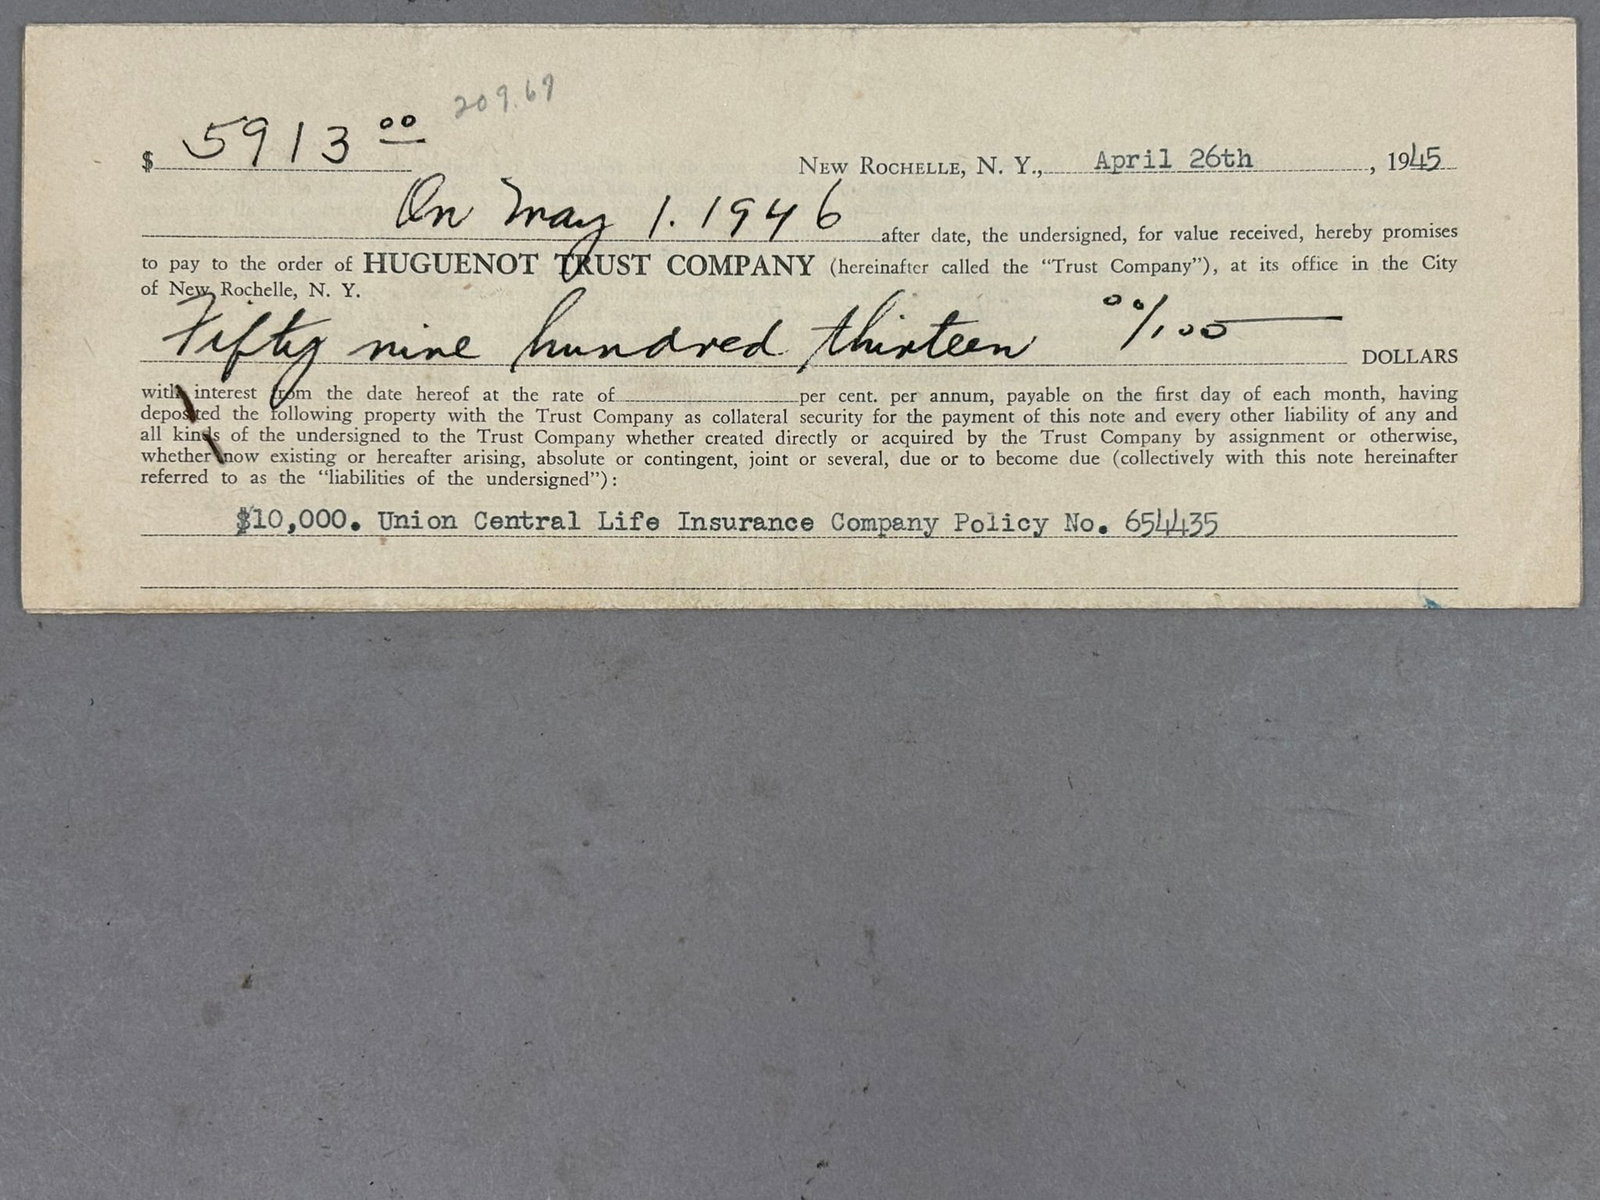 209.67
$ 5913 00
NEW ROCHELLE, N. Y., April 26th, 1945
On May 1. 1946 after date, the undersigned, for value received, hereby promises
to pay to the order of HUGUENOT TRUST COMPANY (hereinafter called the “Trust Company”), at its office in the City
of New Rochelle, N. Y.
Fifty nine hundred thirteen 00/100 DOLLARS
with interest from the date hereof at the rate of per cent. per annum, payable on the first day of each month, having
deposited the following property with the Trust Company as collateral security for the payment of this note and every other liability of any and
all kinds of the undersigned to the Trust Company whether created directly or acquired by the Trust Company by assignment or otherwise,
whether now existing or hereafter arising, absolute or contingent, joint or several, due or to become due (collectively with this note hereinafter
referred to as the “liabilities of the undersigned”):
$10,000. Union Central Life Insurance Company Policy No. 654435